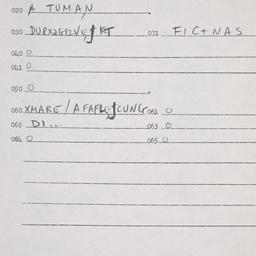 020 A TUMAN
030 031 FICTNAS
040 0
041 0
050 0
060 XMARE / 061 0
062 DI... 063 0
064 0 065 0